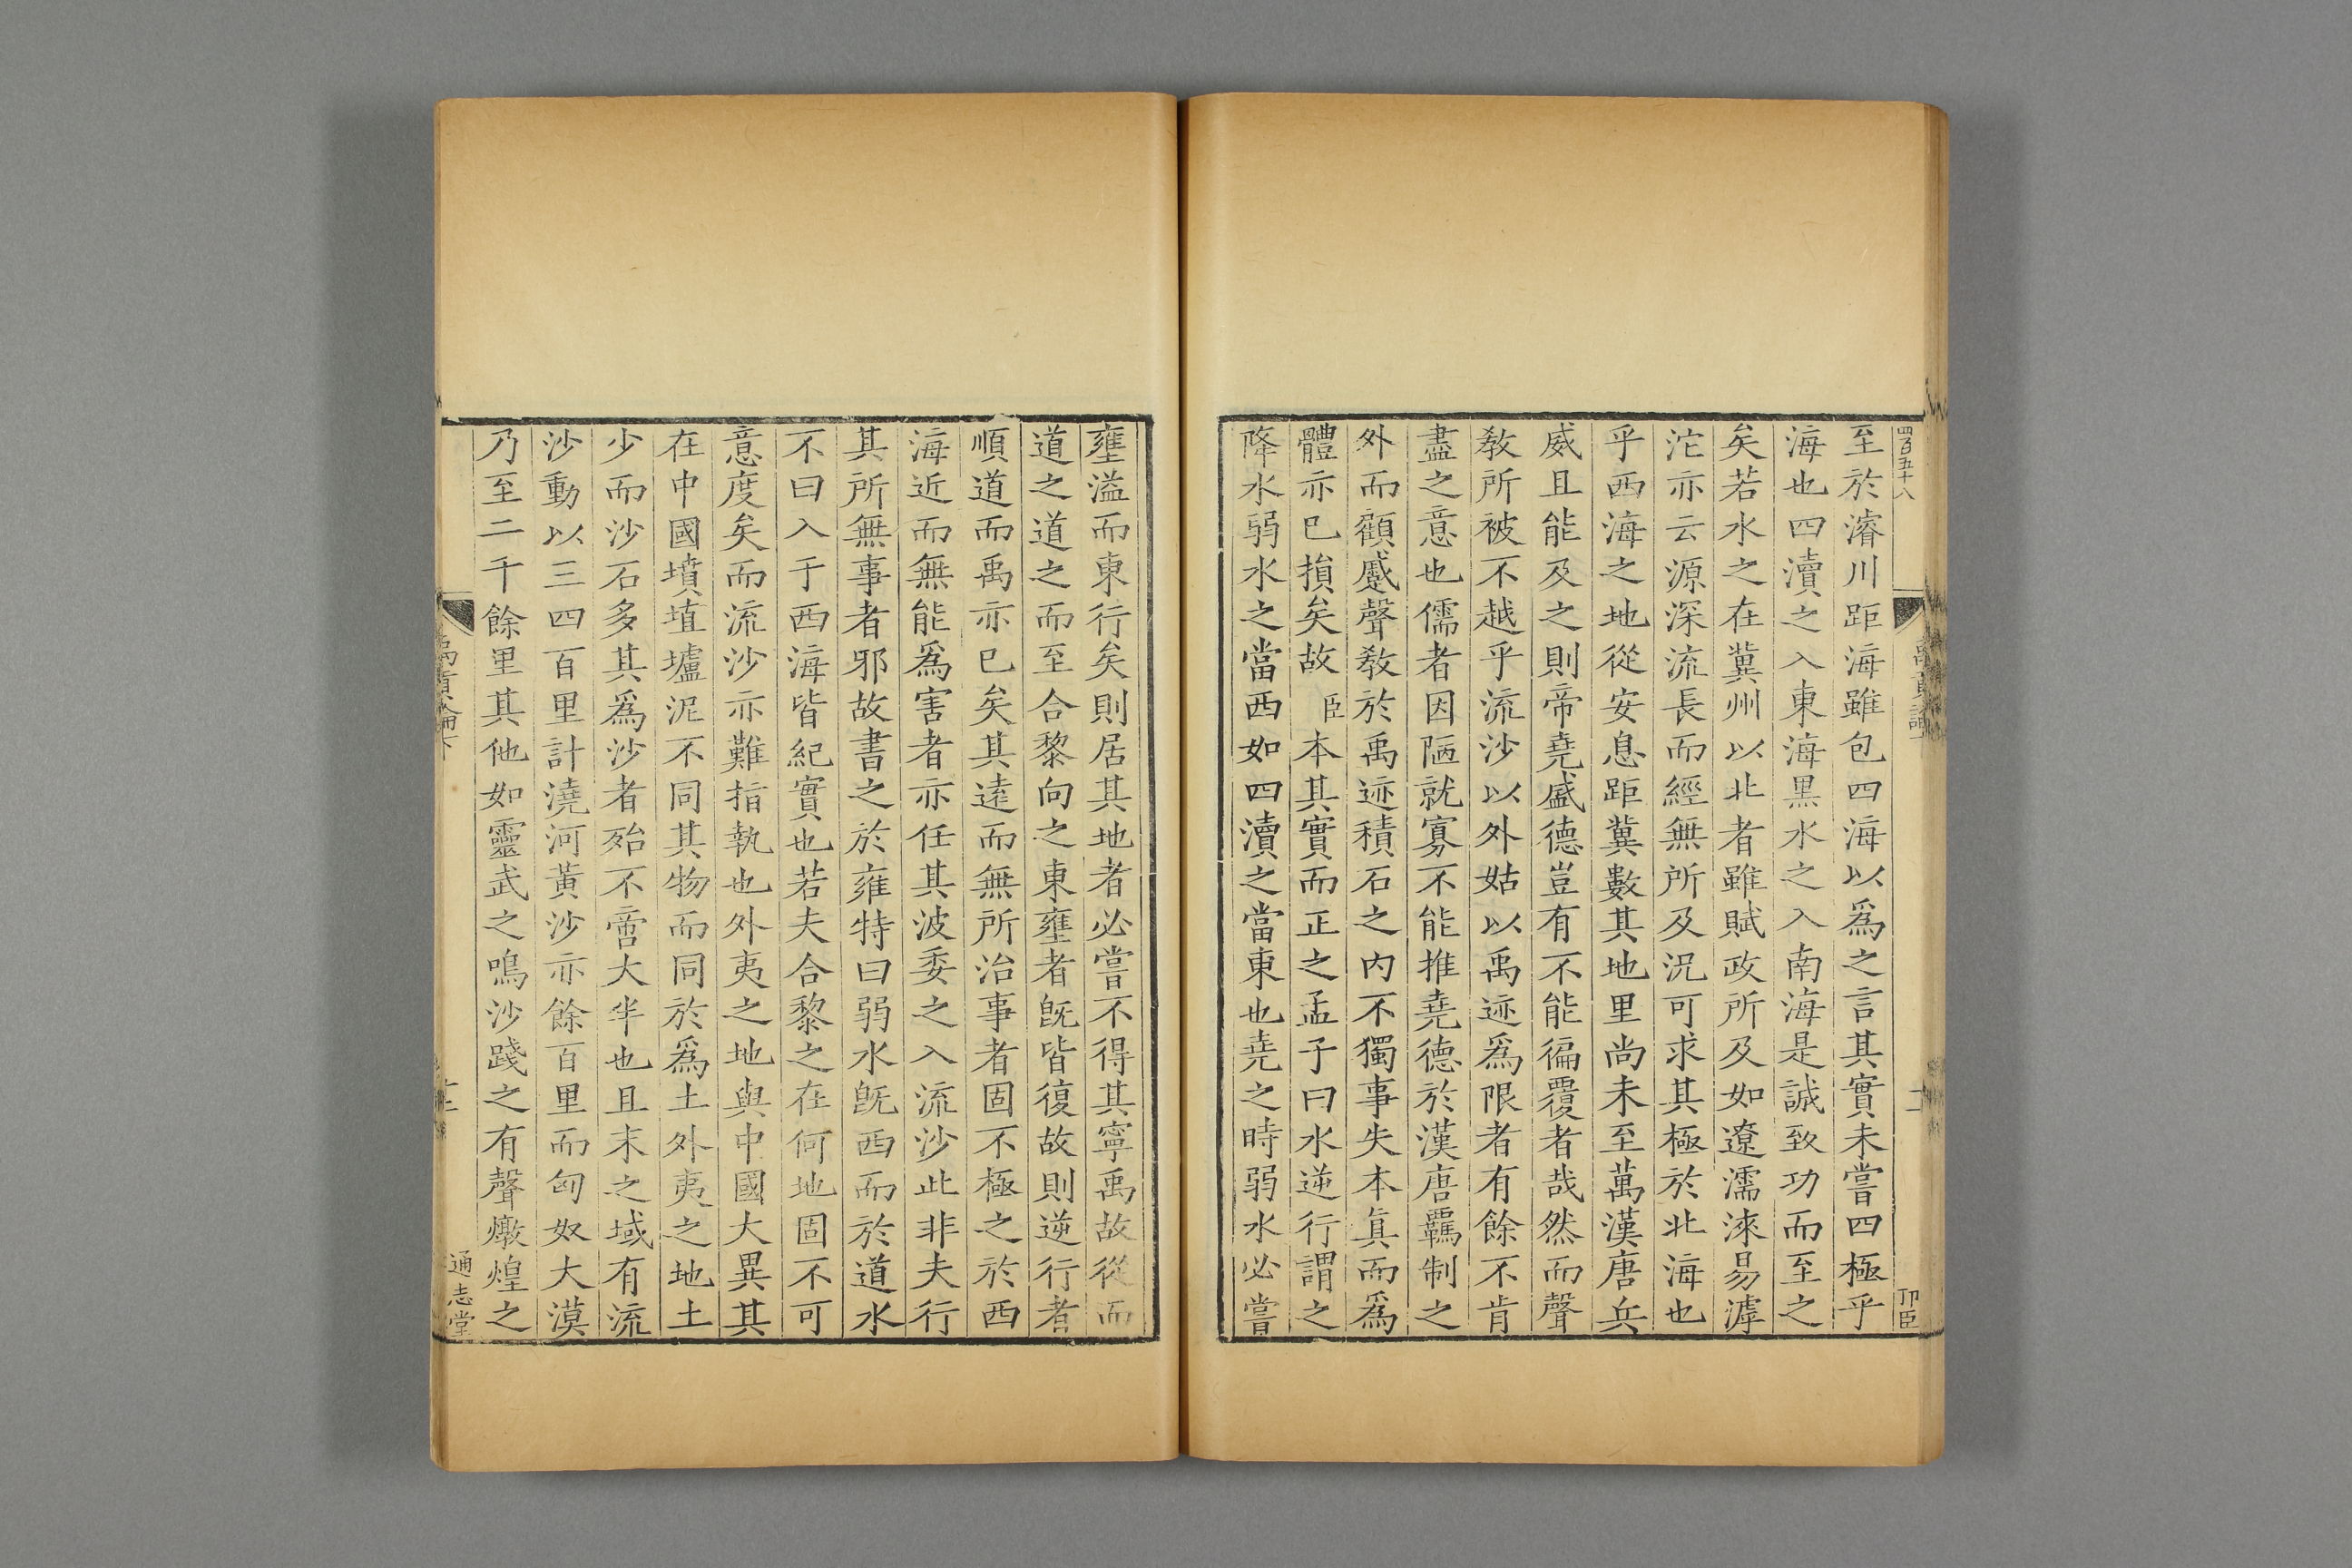 四百五十八
卬臣
至於濬川距海雖包四海以爲之言其實未嘗四極乎
海也四瀆之入東海黒水之入南海是誠致功而至之
矣若水之在冀州以北者雖賦政所及如遼濡淶易滹
沱亦云源深流長而經無所及況可求其極於北海也
乎西海之地從安息距冀數其地里尚未至萬漢唐兵
威且能及之則帝堯盛德豈有不能徧覆者哉然而聲
敎所被不越乎流沙以外姑以禹迹爲限者有餘不肯
盡之意也儒者因陋就寡不能推堯德於漢唐羈制之
外而顧蹙聲敎於禹迹積石之内不獨事失本眞而爲
體亦巳損矣故臣本其實而正之孟子曰水逆行謂之
降水弱水之當西如四瀆之當東也堯之時弱水必嘗
壅溢而東行矣則居其地者必嘗不得其寧禹故從而
道之道之而至合黎向之東壅者旣皆復故則逆行者
順道而禹亦巳矣其遠而無所治事者固不極之於西
海近而無能爲害者亦任其波委之入流沙此非夫行
其所無事者邪故書之於雍特曰弱水旣西而於道水
不曰入于西海皆紀實也若夫合黎之在何地固不可
意度矣而流沙亦難指執也外夷之地與中國大異其
在中國墳埴壚泥不同其物而同於爲土外夷之地土
少而沙石多其爲沙者殆不啻大半也且末之域有流
沙動以三四百里計澆河黃沙亦餘百里而匈奴大漠
乃至二千餘里其他如靈武之鳴沙踐之有聲燉煌之
禹貢論下
通志堂